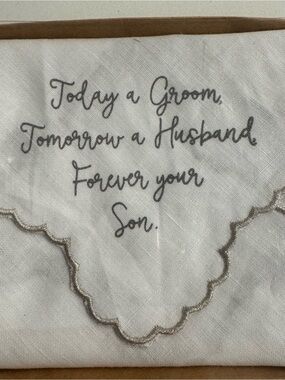 Today a Groom,
Tomorrow a Husband,
Forever your
Son.